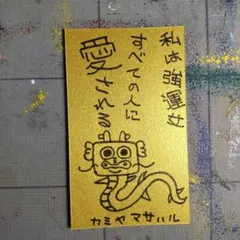 私は強運女
すべての人に
愛される
カミヤマサハル